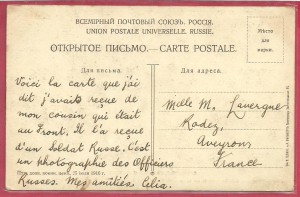 ВСЕМІРНЫЙ ПОЧТОВЫЙ СОЮЗЪ. РОССІЯ.
UNION POSTALE UNIVERSELLE. RUSSIE.
ОТКРЫТОЕ ПИСЬМО. — CARTE POSTALE.
Мѣсто
для
марки.
Для письма.
Для адреса.
Voici la carte que j'ai
dit j'avais reçue de
mon cousin qui était
au Front. Il l'a reçue
d'un Soldat Russe. C'est
un photographie des Officiers
Russes. Mes amitiés. Celia.
Melle M. Lavergne
Rodez,
Aveyron,
France